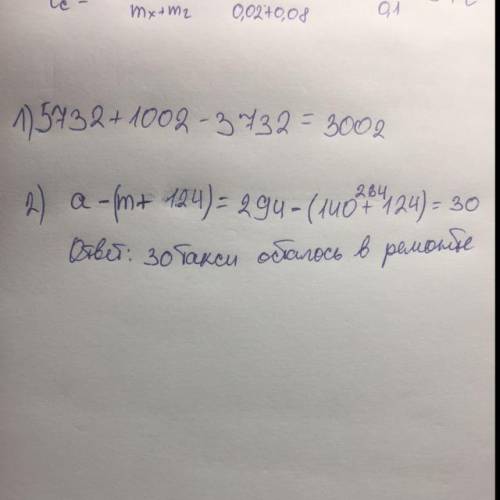 mx+m2 0,02+0,08 0,1
1) 5732+1002-3732=3002
264
2) a-(m+ 124)=294-(140+124)=30
Ответ: 30 такси осталось в ремонте